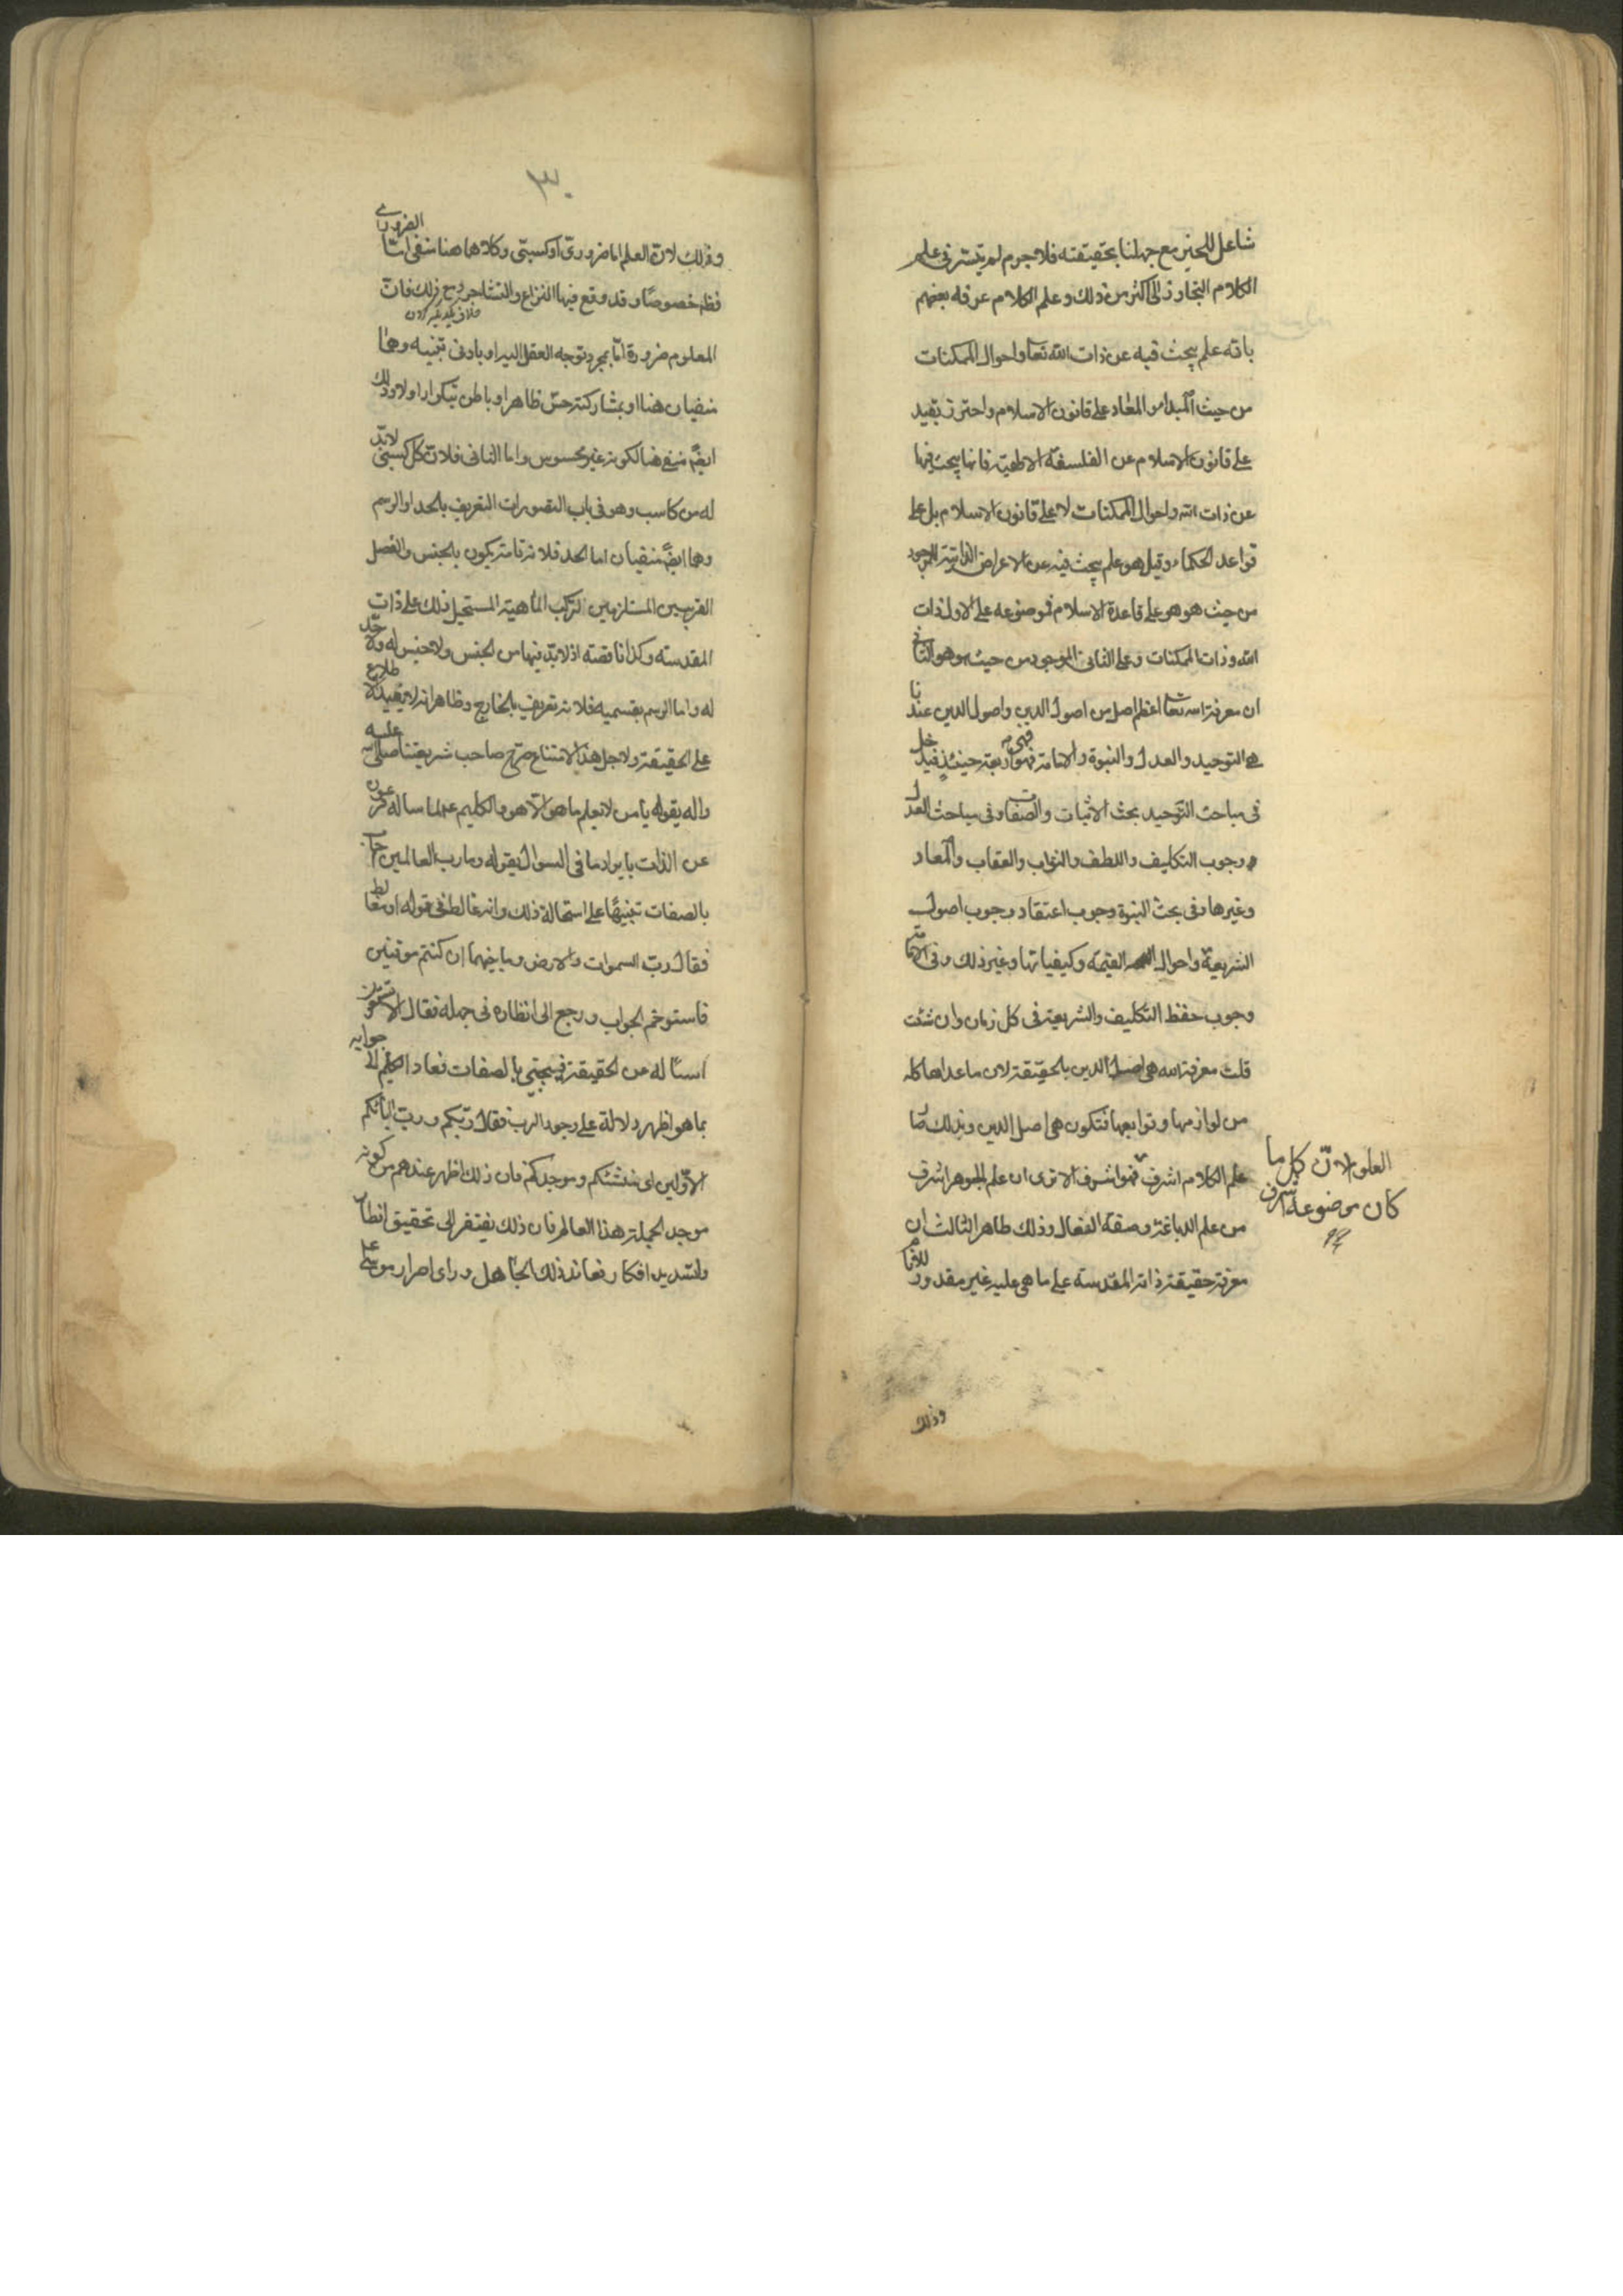 شاغل للحيز مع جهلنا بحقيقته فلا جرم لم يتيسر في علم
الكلام التجاوز الى اكثر من ذلك وعلم الكلام عرفه بعضهم
بانه علم يبحث فيه عن ذات الله تعا واحوال الممكنات
من حيث المبداء والمعاد على قانون الاسلام واحترز بقيد
على قانون الاسلام عن الفلسفة الالهية فانها يبحث فيها
عن ذات الله واحوال الممكنات لا على قانون الاسلام بل على
قواعد الحكماء وقيل هو علم يبحث فيه عن الاعراض الذاتية للموجود
من حيث هو هو على قاعدة الاسلام فموضوعه على الاول ذات
الله وذات الممكنات وعلى الثاني الموجود من حيث هو هو الثاني
ان معرفة الله تعا اعظم اصل من اصول الدين واصول الدين عندنا
هي التوحيد والعدل والنبوة والامامة فهي اربعة حينئذ فيدخل
في مباحث التوحيد بحث الاثبات والصفات وفي مباحث العدل
وجوب التكليف واللطف والثواب والعقاب والمعاد
وغيرها وفي بحث النبوة وجوب اعتقاد وجوب اصول
الشريعة واحوال القيمة وكيفياتها وغير ذلك وفي الامامة
وجوب حفظ التكليف والشريعة في كل زمان وان شئت
قلت معرفة الله هي اصل الدين بالحقيقة لان ما عداها كله
من لوازمها وتوابعها فتكون هي اصل الدين وبذلك صار
علم الكلام اشرف العلوم لان كل ما
كان موضوعه اشرف
فهو اشرف الا ترى ان علم الجوهر اشرف
من علم الدباغة وصفة الفعال وذلك ظاهر الثالث ان
معرفة حقيقة ذاته المقدسة على ما هي عليه غير مقدور للانام
وذلك
٣٠
وذلك لان العلم اما ضروري او كسبي وكلاهما هنا منفي اما الضروري
فظ خصوصا وقد وقع فيها النزاع والتشاجر ومع ذلك فان
المعلوم ضرورة اما بمجرد توجه العقل اليه او بادنى تنبيه وهما
منفيان هنا او بمشاركة حس ظاهر او باطن بتكرار او لا وذلك
ايضً منفي هنا لكونه غير محسوس واما الثاني فلان كل كسبي لابد
له من كاسب وهو في باب التصورات التعريف بالحد او الرسم
وهما ايضً منفيان اما الحد فلان تامه يكون بالجنس والفصل
القريبين المستلزمين لتركب الماهية المستحيل ذلك على ذاته
المقدسة وكذا ناقصه اذ لا بد فيها من الجنس ولا جنس له ولا حد
له واما الرسم بقسميه فلانه تعريف بالخارج وظاهر انه لا يفيد اطلاع
على الحقيقة ولاجل هذا الامتناع صرح صاحب شريعتنا صلى الله عليه
واله بقوله يا من لا يعلم ما هو الا هو والكليم لما ساله فرعون
عن الذات بايراد ما في السوال بقوله وما رب العالمين اجاب
بالصفات تنبيها على استحالة ذلك وانه غالط في قوله او مغالط
فقال رب السموات والارض وما بينهما ان كنتم موقنين
فاستوخم الجواب ورجع الى انظاره في جهله فقال الا تستمعون
اسئاله عن الحقيقة فيجيبني بالصفات فعاد الكليم الى جوابه
بما هو اظهر دلالة على وجود الرب فقال ربكم ورب ابائكم
الاولين اي منشئكم وموجدكم فان ذلك اظهر عندهم من كونه
موجد الجملة هذا العالم فان ذلك يفتقر الى تحقيق انظار
وتسديد افكار فعاند ذلك الجاهل وراى اصرار موسى على